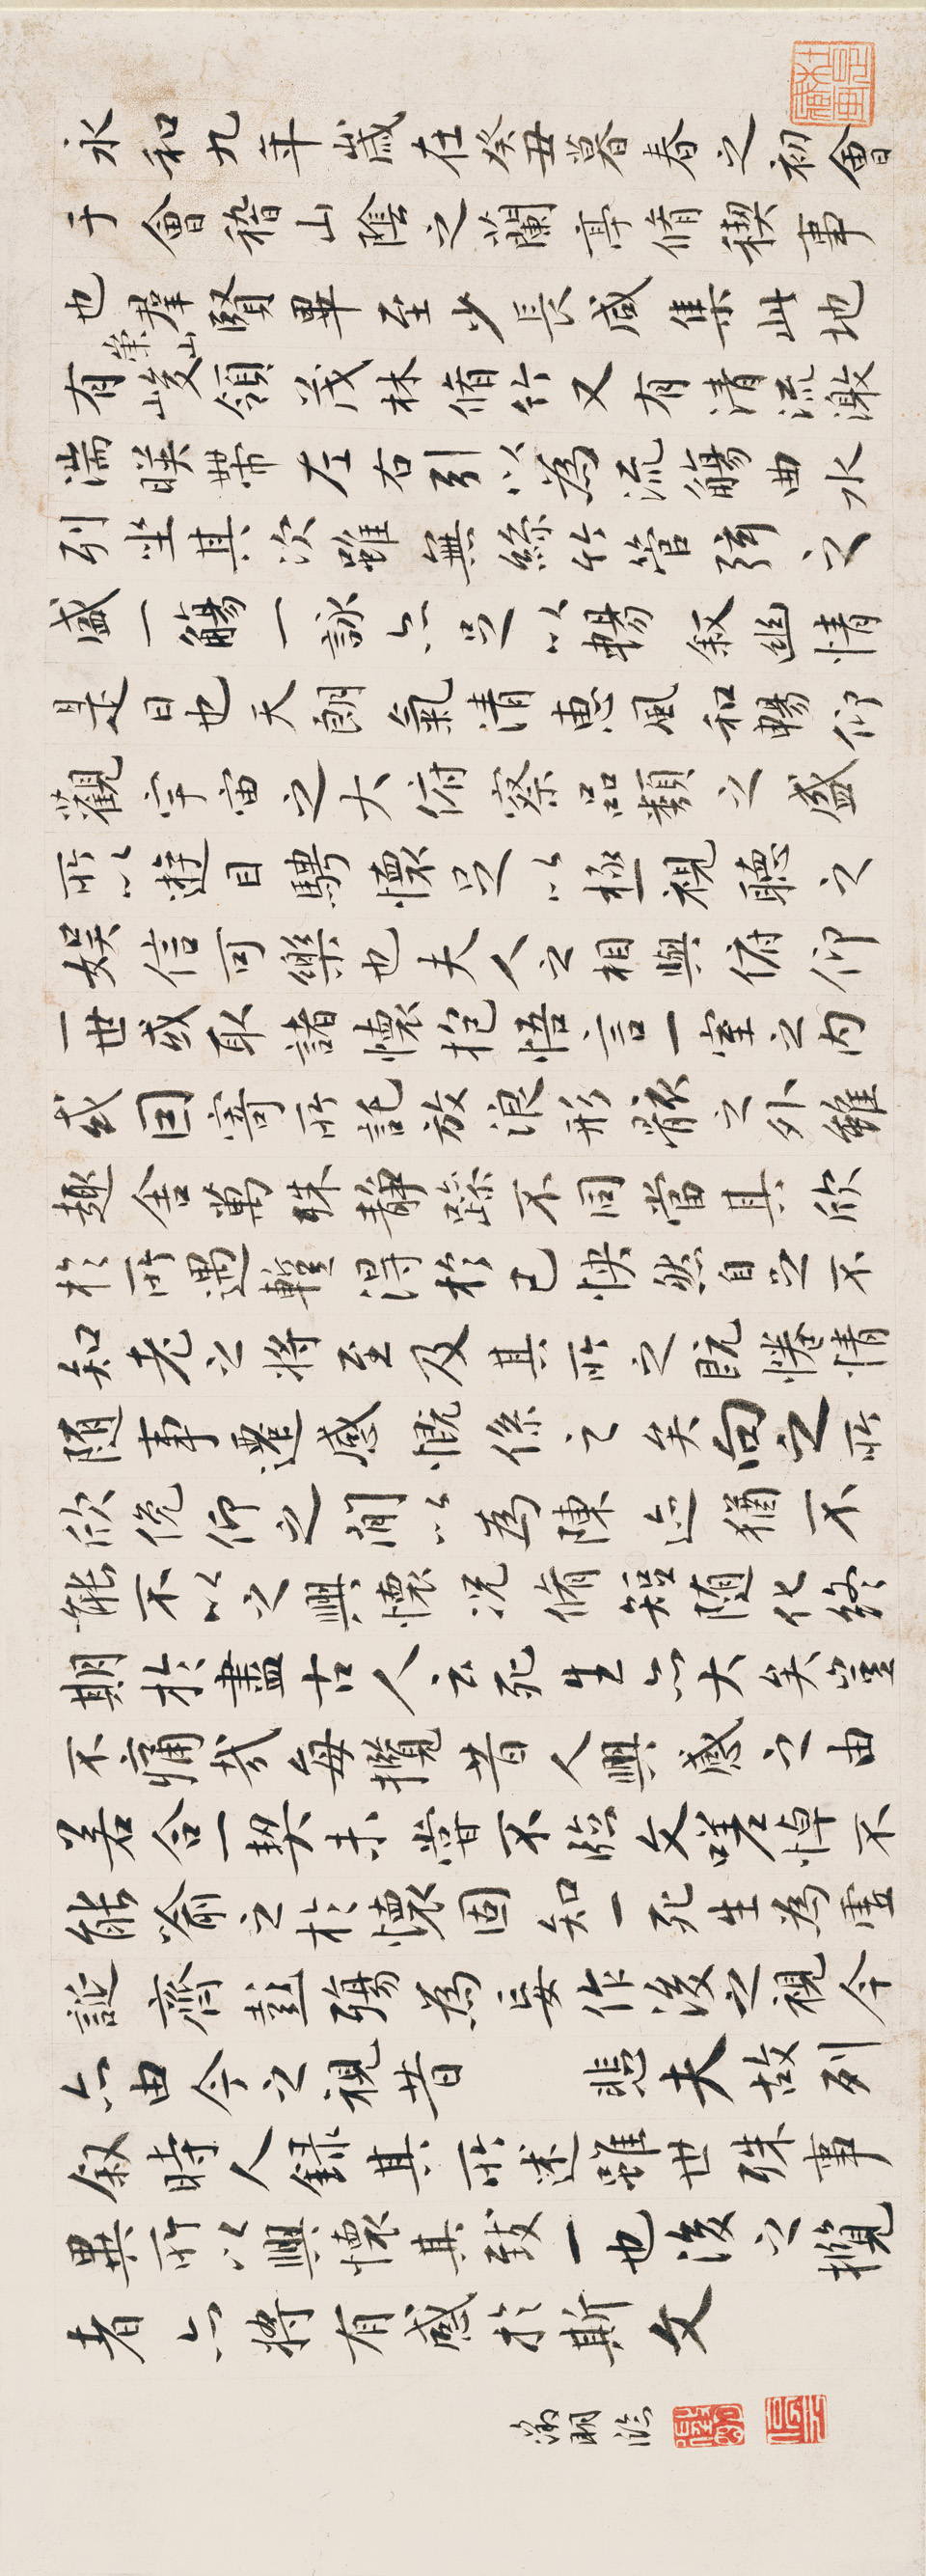 永和九年歲在癸丑暮春之初會
于會稽山陰之蘭亭脩稧事
也羣賢畢至少長咸集此地
有崇山峻領茂林脩竹又有清流激
湍暎帶左右引以為流觴曲水
列坐其次雖無絲竹管弦之
盛一觴一詠亦足以暢叙幽情
是日也天朗氣清惠風和暢仰
觀宇宙之大俯察品類之盛
所以遊目騁懷足以極視聽之
娛信可樂也夫人之相與俯仰
一世或取諸懷抱悟言一室之內
或因寄所託放浪形骸之外雖
趣舍萬殊靜躁不同當其欣
於所遇蹔得於己怏然自足不
知老之將至及其所之既惓情
隨事遷感慨係之矣向之所
欣俛仰之閒以為陳迹猶不
能不以之興懷況脩短隨化終
期於盡古人云死生亦大矣豈
不痛哉每攬昔人興感之由
若合一契未嘗不臨文嗟悼不
能喻之於懷固知一死生為虛
誕齊彭殤為妄作後之視今
亦由今之視昔 悲夫故列
叙時人錄其所述雖世殊事
異所以興懷其致一也後之攬
者亦將有感於斯文
明臨